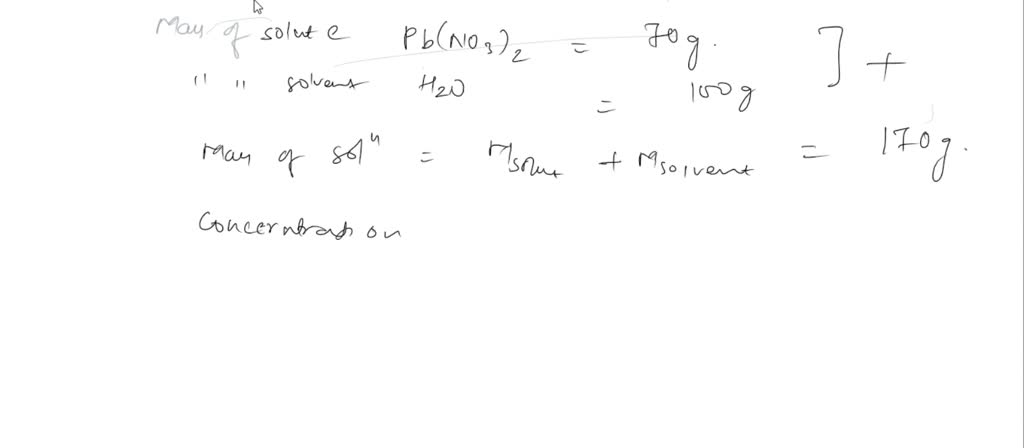 Mass of solute Pb(NO3)2 = 70g. ] +
" " solvent H2O = 100g
Mass of solⁿ = Msolute + Msolvent = 170g.
Concentration